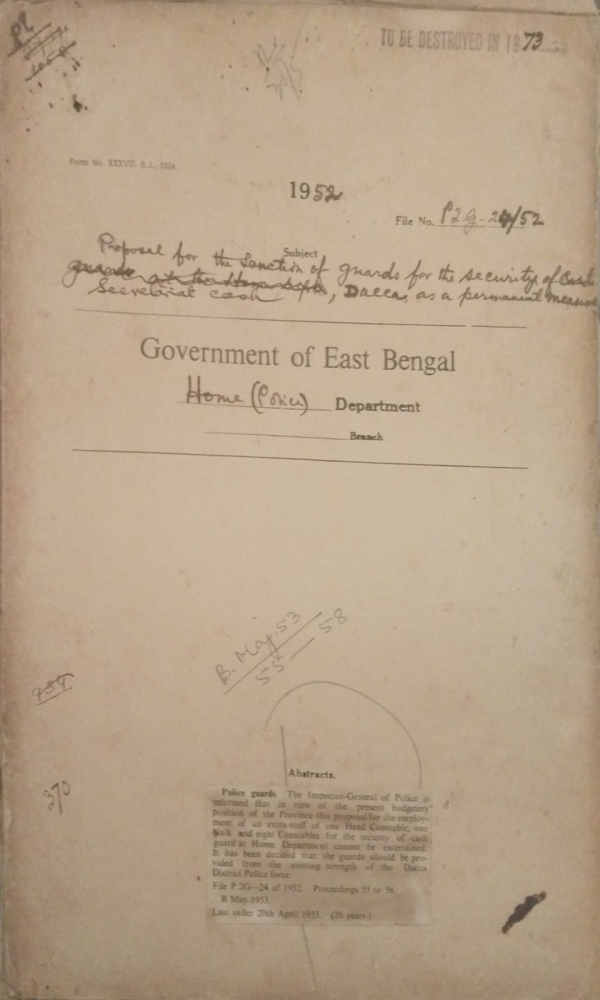 TO BE DESTROYED IN 1973
Form No. XXXVIII. S.I., 1924.
1952
File No. P2G-24/52
Subject
Proposal for the Sanction of guards for the security of Cash
guards at the Home Deptt., Dacca, as a permanent measure
Secretariat cash
Government of East Bengal
Home (Police) Department
Branch
B. May 53
55 — 58
370
Abstracts.
Police guards. The Inspector-General of Police is
informed that in view of the present budgetary
position of the Province this proposal for the employ-
ment of an extra-staff of one Head Constable, one
Naik and eight Constables for the security of cash
guard at Home Department cannot be entertained.
It has been decided that the guards should be pro-
vided from the existing strength of the Dacca
District Police force.
File P.2G—24 of 1952. Proceedings 55 to 58.
B May 1953.
Last order 20th April 1953. (20 years)